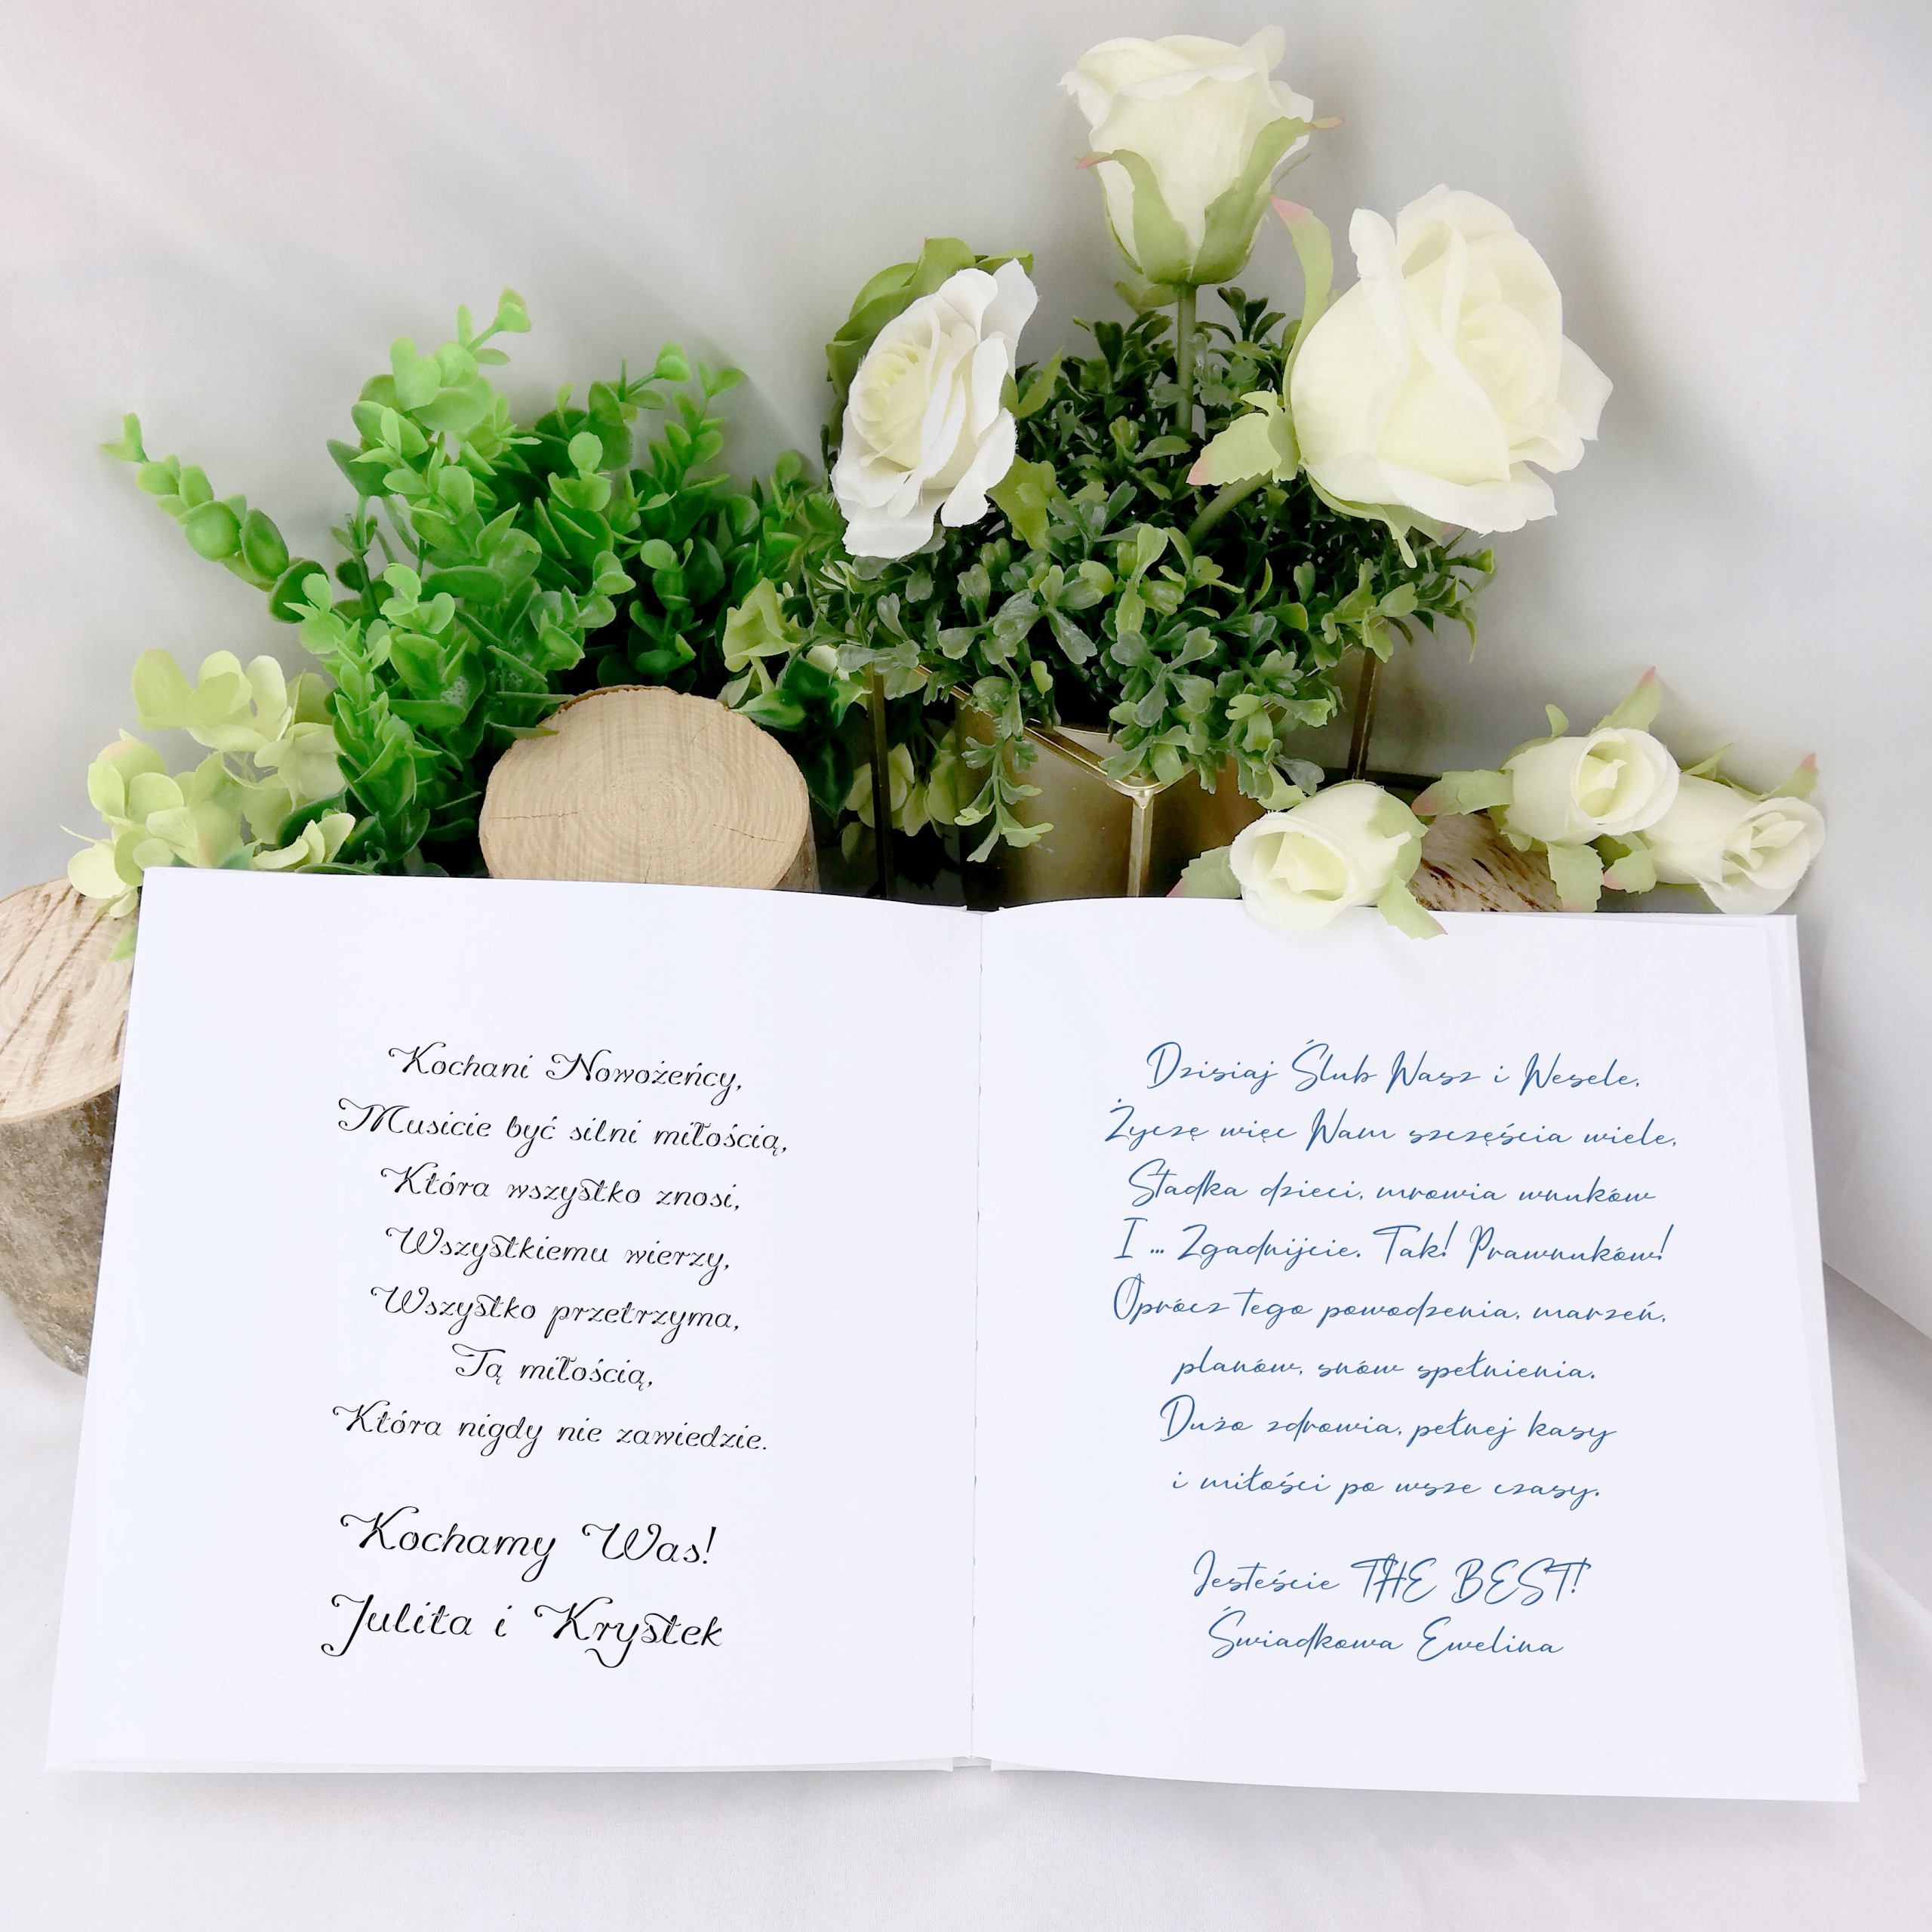 Kochani Nowożeńcy,
Musicie być silni miłością,
Która wszystko znosi,
Wszystkiemu wierzy,
Wszystko przetrzyma,
Tą miłością,
Która nigdy nie zawiedzie.
Kochamy Was!
Julita i Krystek
Dzisiaj Ślub Wasz i Wesele,
Życzę więc Wam szczęścia wiele,
Stadka dzieci, mrowia wnuków
I ... Zgadnijcie. Tak! Prawnuków!
Oprócz tego powodzenia, marzeń,
planów, snów spełnienia.
Dużo zdrowia, pełnej kasy
i miłości po wsze czasy.
Jesteście THE BEST!
Świadkowa Ewelina